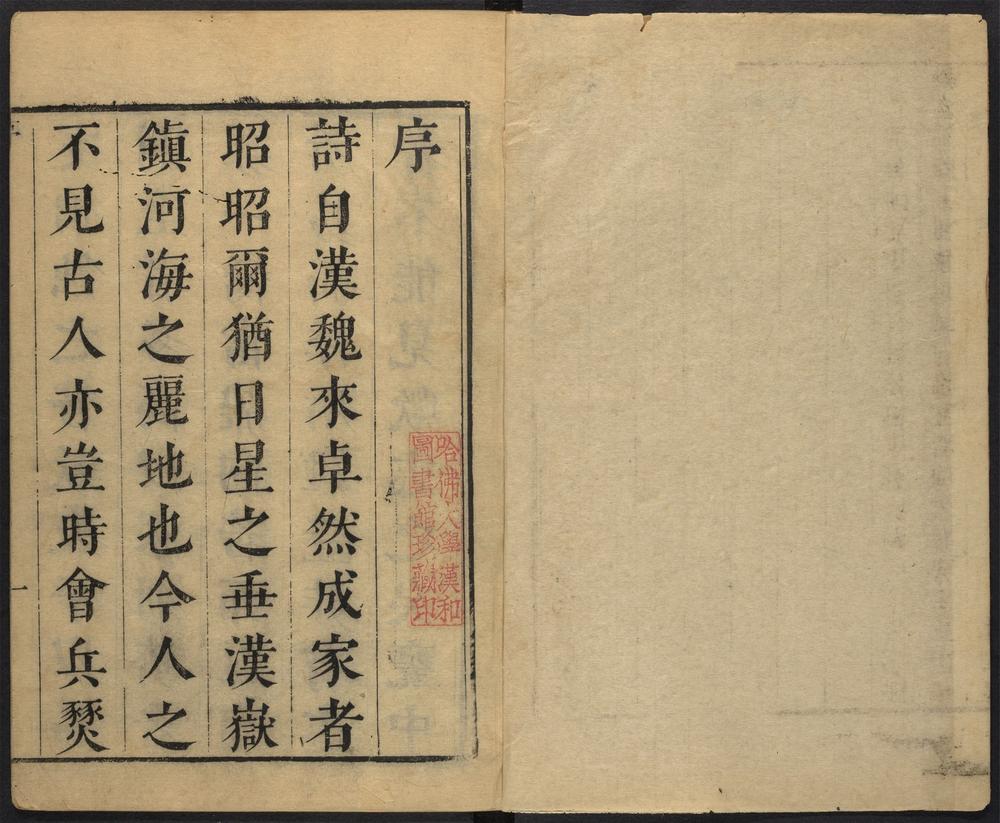 序
詩自漢魏來卓然成家者
昭昭爾猶日星之垂漢嶽
鎮河海之麗地也今人之
不見古人亦豈時會兵燹
一
哈佛大學漢和
圖書館珍藏印